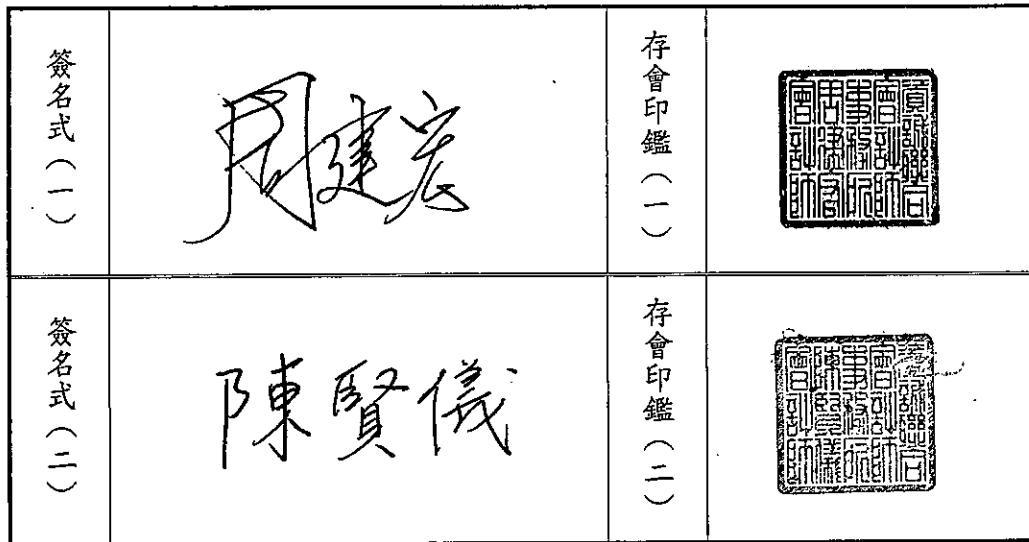 簽名式(一)
周建宏
存會印鑑(一)
資誠聯合
會計師
事務所
周建宏
會計師
簽名式(二)
陳賢儀
存會印鑑(二)
資誠聯合
會計師
事務所
陳賢儀
會計師